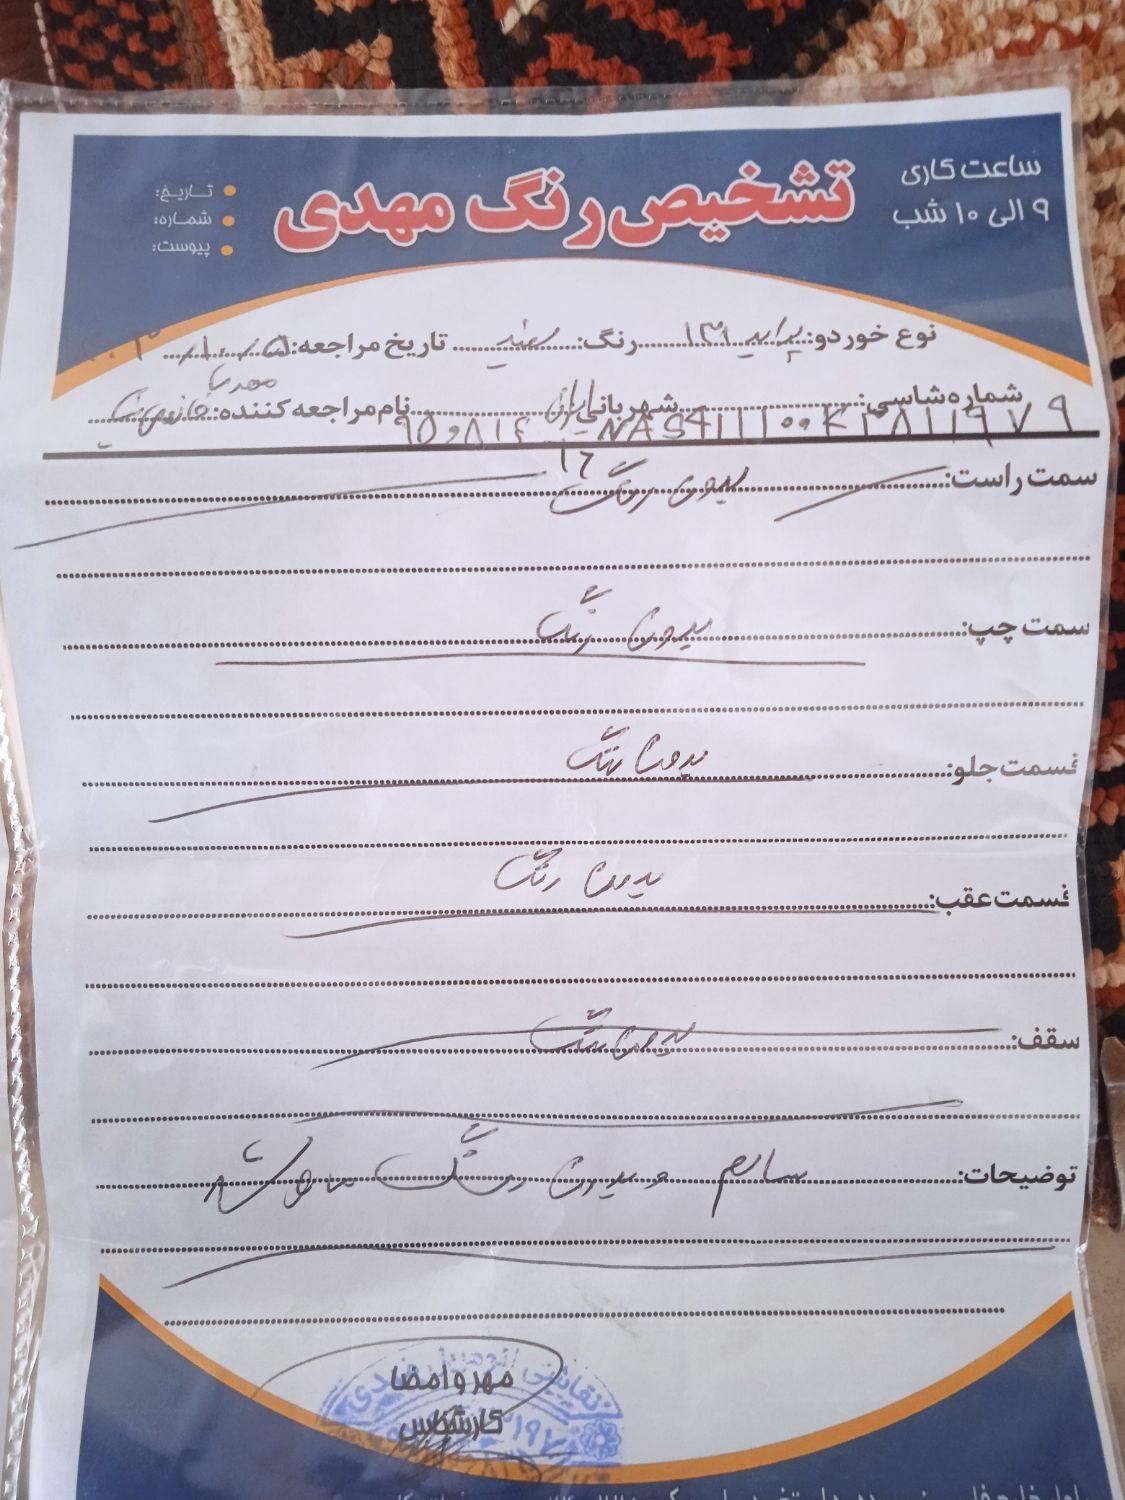 ساعت کاری
۹ الی ۱۰ شب
تشخیص رنگ مهدی
تاریخ:
شماره:
پیوست:
نوع خوردو: پراید ۱۳۱ رنگ: سفید تاریخ مراجعه:
شماره شاسی: شهربانی: ایران نام مراجعه کننده: مهدی
NAS411100K3811979
سمت راست: بدون رنگ
سمت چپ: بدون رنگ
قسمت جلو: بدون رنگ
قسمت عقب: بدون رنگ
سقف: بدون رنگ
توضیحات: سالم و بدون رنگ
مهر و امضا
کارشناس